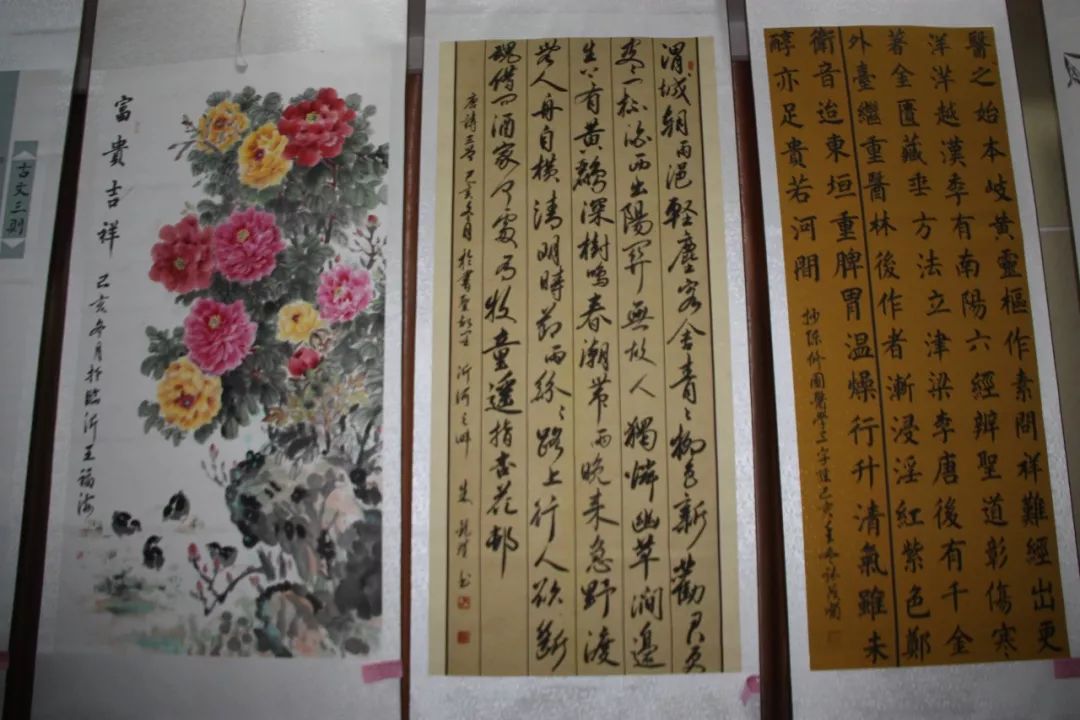 古文三则
富貴吉祥
己亥冬月於臨沂王福海
渭城朝雨浥軽塵客舍青〻柳色新勸君更
尽一杯酒西出陽関無故人獨憐幽草澗邊
生上有黄鸝深樹鳴春潮帶雨晚来急野渡
無人舟自横清明時节雨紛〻路上行人欲断
魂借问酒家何處有牧童遥指杏花邨
唐詩三首 己亥冬月於書聖故里沂河之畔 朱
醫之始本岐黃靈樞作素問祥難經出更
洋洋越漢季有南陽六經辨聖道彰傷寒
著金匱藏垂方法立津梁李唐後有千金
外臺繼重醫林後作者漸浸淫紅紫色鄭
衛音迨東垣重脾胃温燥行升清氣雖未
醇亦足貴若河間
抄陳修園醫學三字經己亥